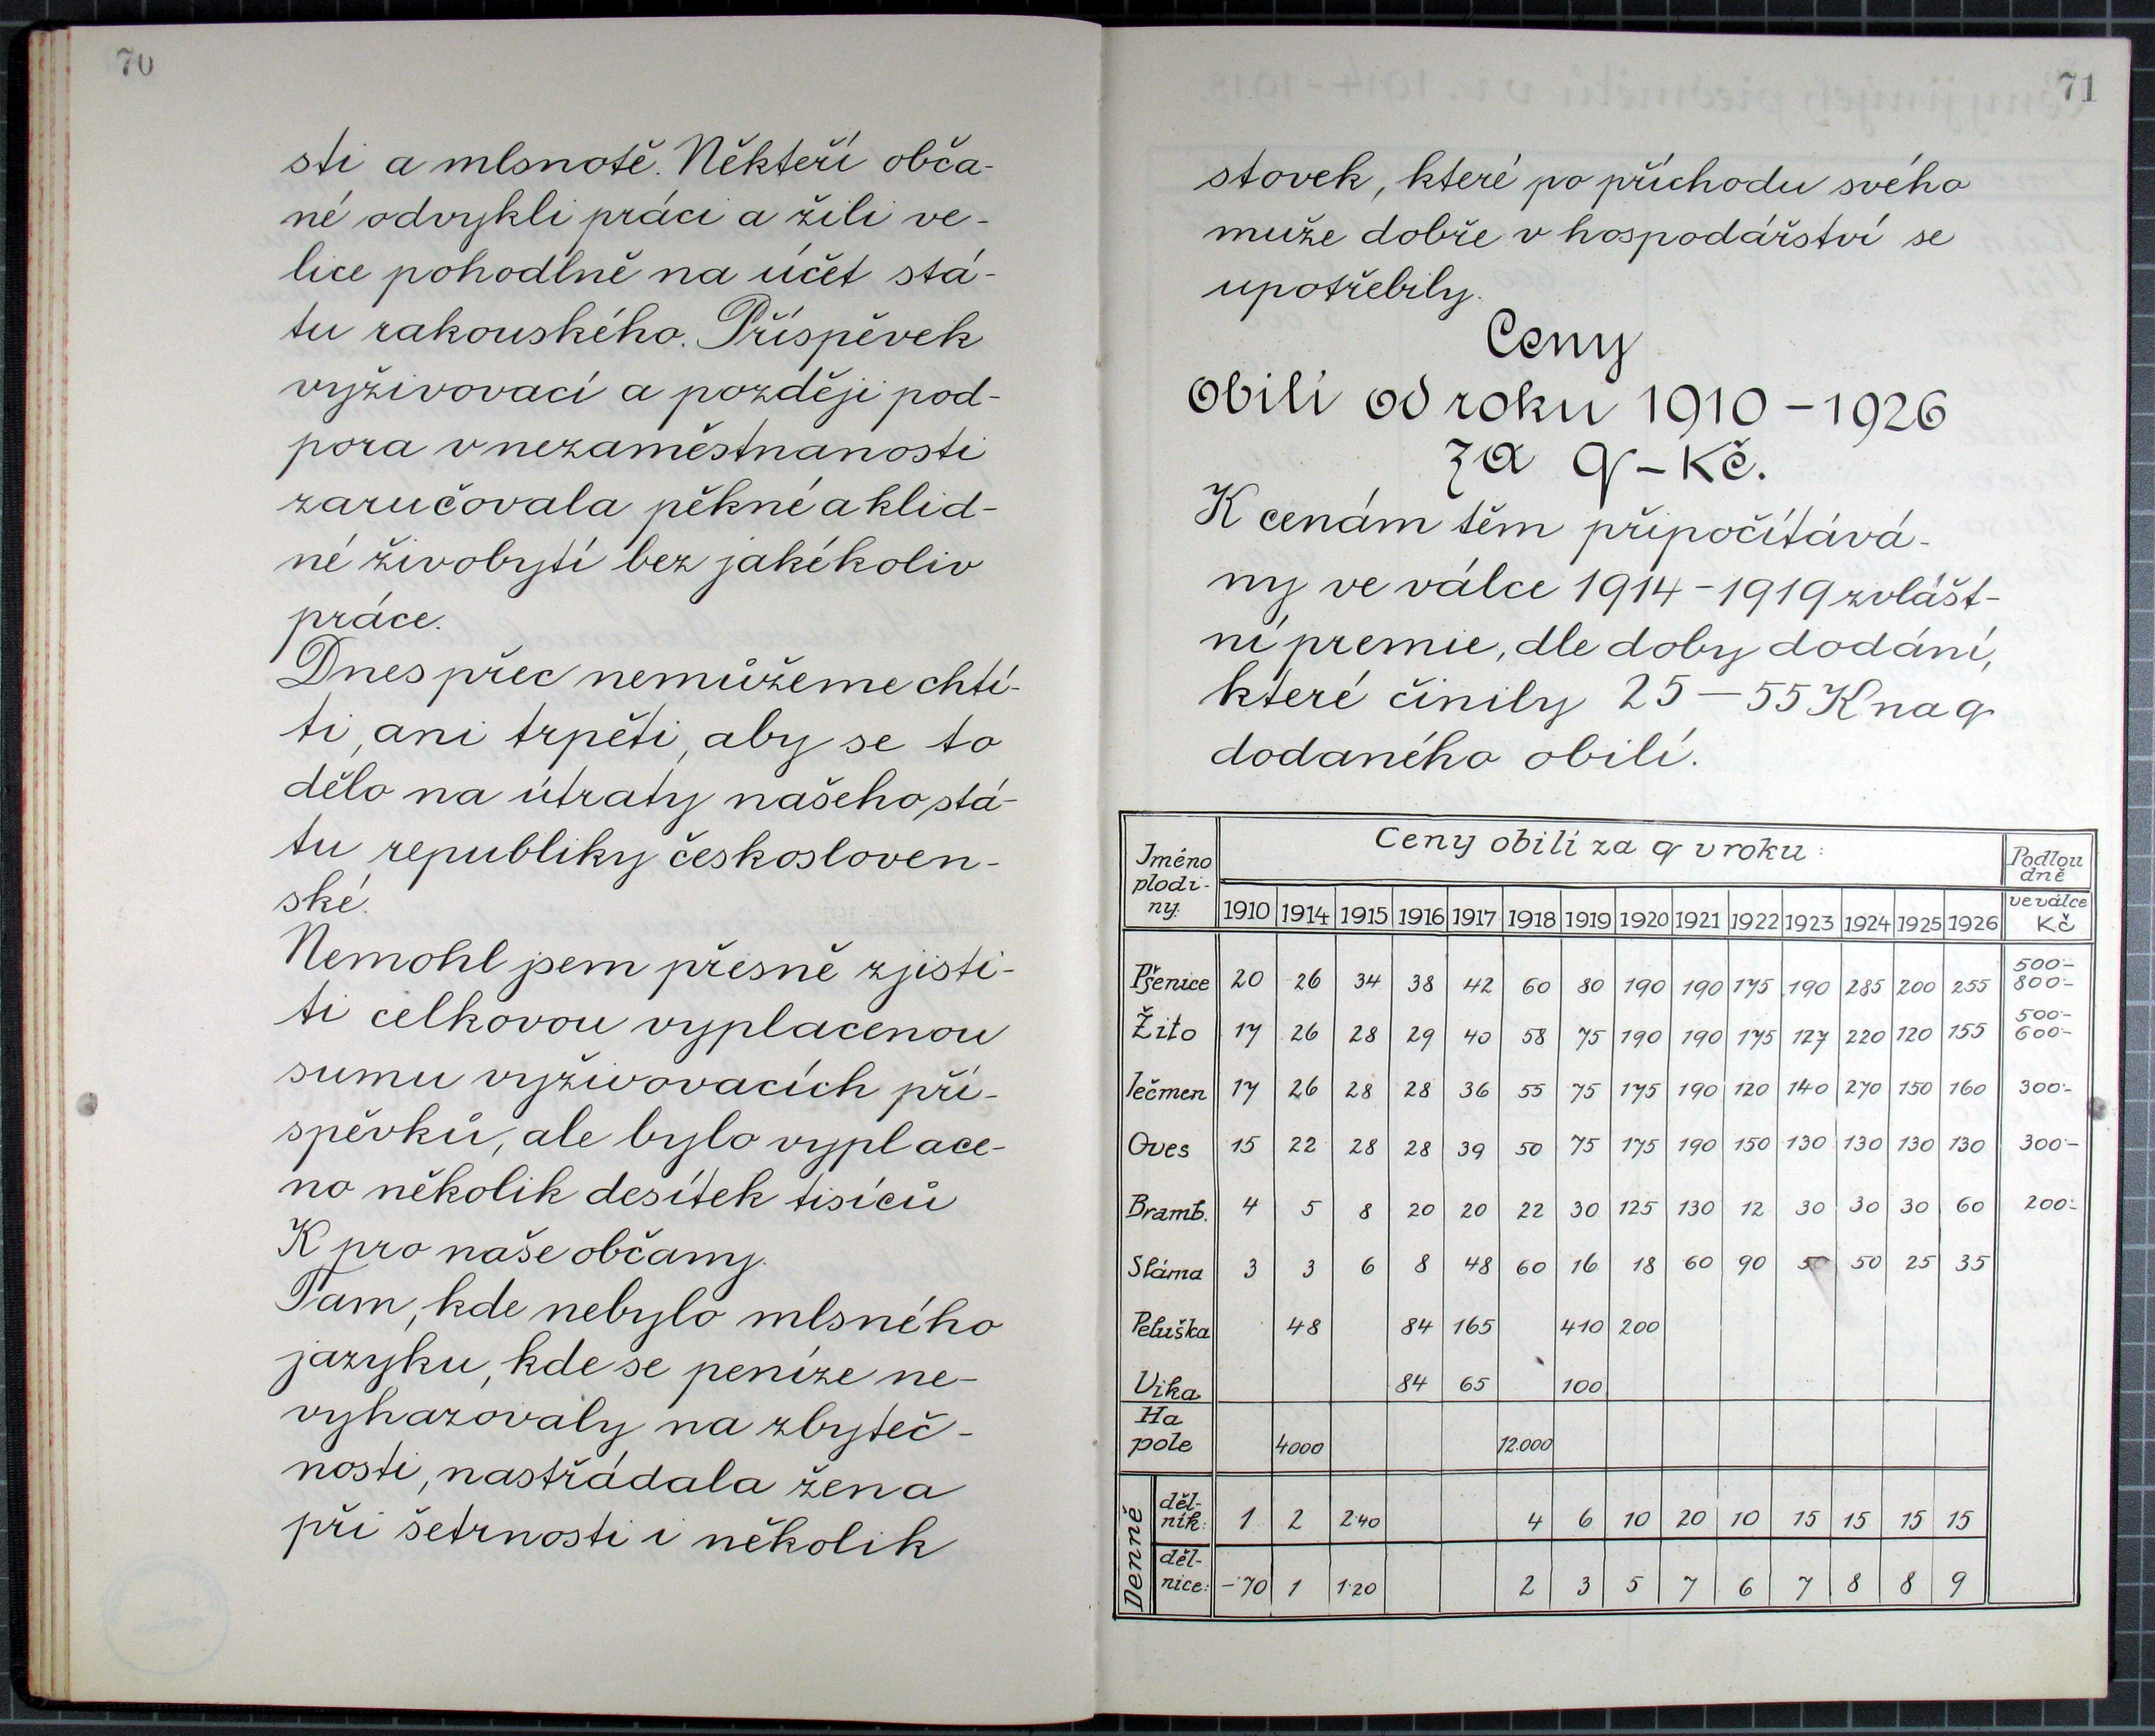 70
sti a mlsnotě. Někteří obča-
né odvykli práci a žili ve-
lice pohodlně na účet stá-
tu rakouského. Příspěvek
vyživovací a později pod-
pora v nezaměstnanosti
zaručovala pěkné a klid-
né živobytí bez jakékoliv
práce.
Dnes přec nemůžeme chtí-
ti, ani trpěti, aby se to
dělo na útraty našeho stá-
tu republiky českosloven-
ské.
Nemohl jsem přesně zjisti-
ti celkovou vyplacenou
sumu vyživovacích pří-
spěvků, ale bylo vyplace-
no několik desítek tisíců
K pro naše občany.
Tam, kde nebylo mlsného
jazyku, kde se peníze ne-
vyhazovaly na zbyteč-
nosti, nastřádala žena
při šetrnosti i několik
71
stovek, které po příchodu svého
muže dobře v hospodářství se
upotřebily.
Ceny
obilí od roku 1910 - 1926
za q - Kč.
K cenám těm připočítává-
ny ve válce 1914 - 1919 zvlášt-
ní premie, dle doby dodání,
které činily 25 — 55 K na q
dodaného obilí.
Jméno plodi- ny. Ceny obilí za q v roku: Podlou dně ve válce Kč
1910 1914 1915 1916 1917 1918 1919 1920 1921 1922 1923 1924 1925 1926
Pšenice 20 26 34 38 42 60 80 190 190 175 190 285 200 255 500·- 800·-
Žito 17 26 28 29 40 58 75 190 190 175 127 220 120 155 500·- 600·-
Ječmen 17 26 28 28 36 55 75 175 190 120 140 270 150 160 300·-
Oves 15 22 28 28 39 50 75 175 190 150 130 130 130 130 300·-
Bramb. 4 5 8 20 20 22 30 125 130 12 30 30 30 60 200·-
Sláma 3 3 6 8 48 60 16 18 60 90 50 50 25 35
Peluška 48 84 165 410 200
Vika 84 65 100
Ha
pole 4000 12.000
Denně
děl-
ník: 1 2 2·40 4 6 10 20 10 15 15 15 15
děl-
nice: -·70 1 1·20 2 3 5 7 6 7 8 8 9